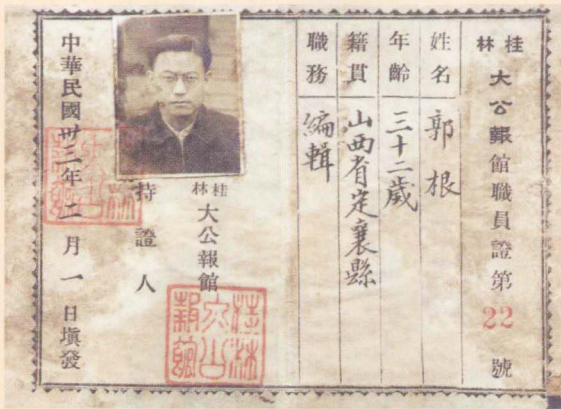 桂林
大公報館職員證第22號
姓名 郭根
年齡 三十二歲
籍貫 山西省定襄縣
職務 編輯
桂林
大公報館
桂林大公報館
持證人
中華民國卅三年二月一日塡發
桂林大公報館